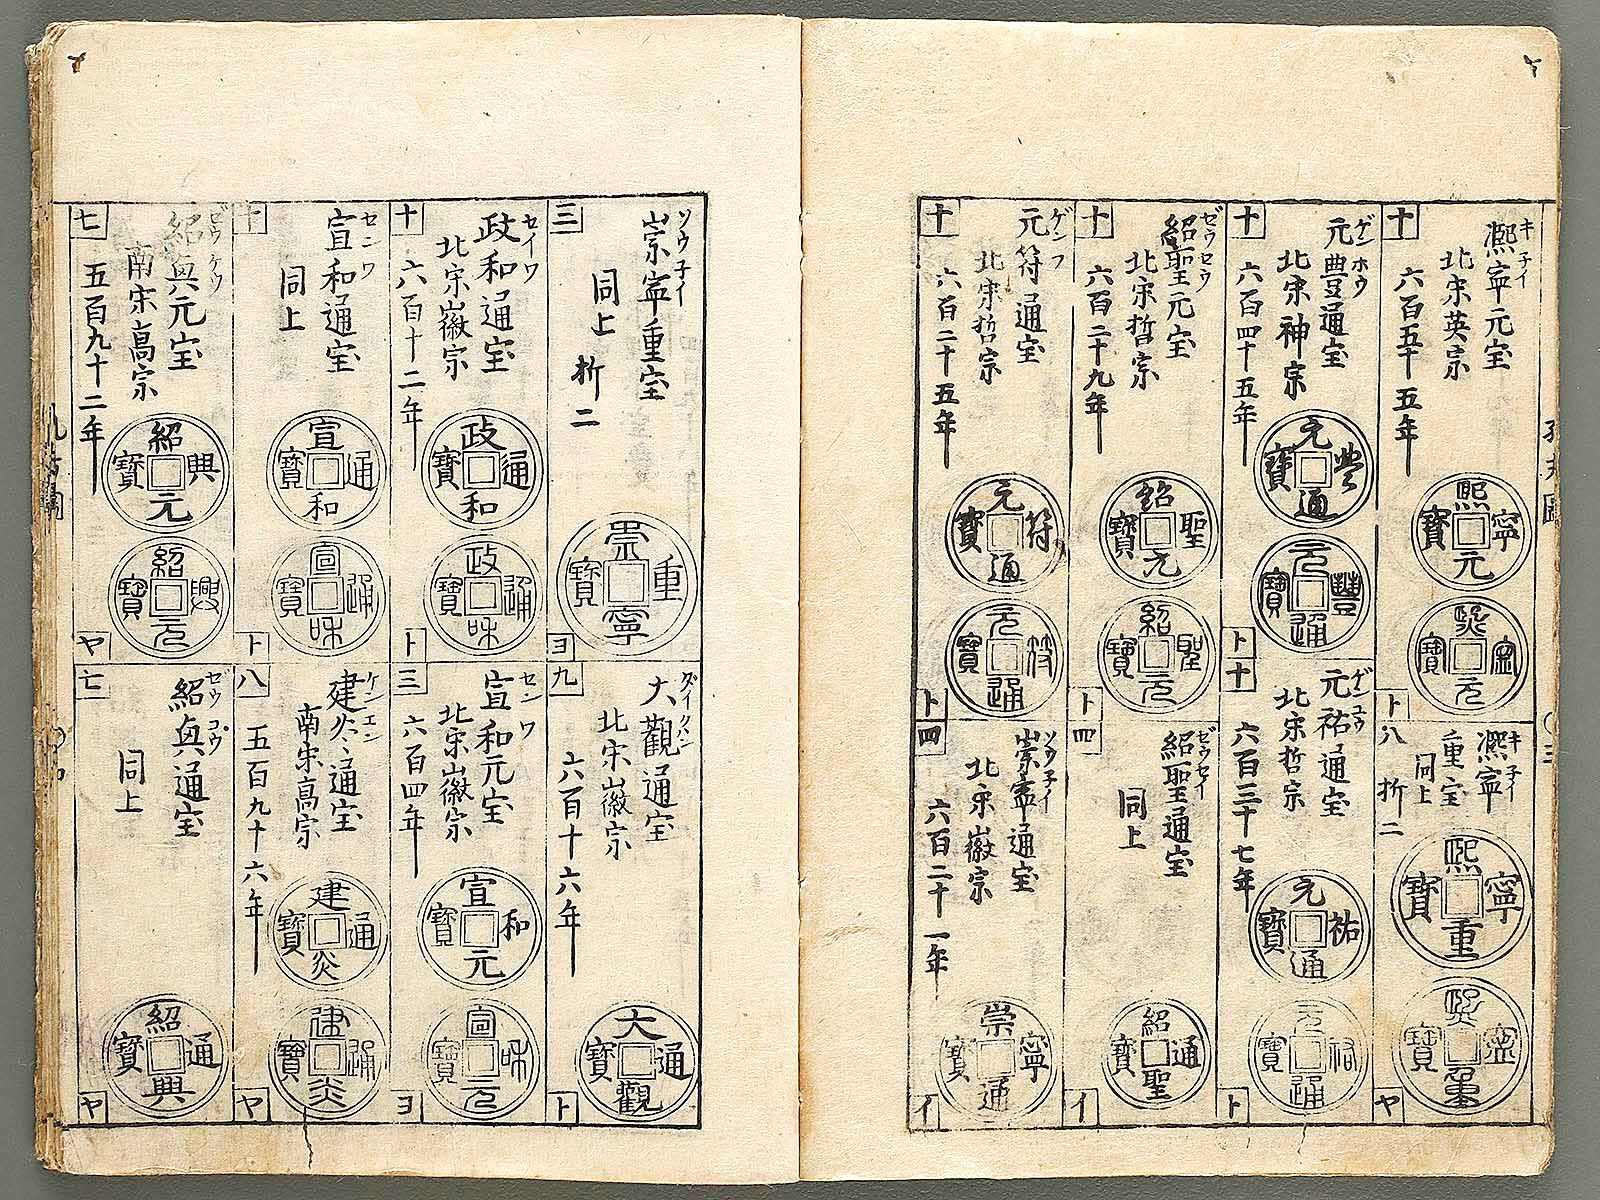 十
キ子イ
凞寧元宝
北宋英宗
六百五十五年
熙寧元寳
熙寧元寳
ト
八
キ子イ
凞寧
重宝
同上
折二
熙寧重寳
熙寧重寳
ヤ
十
ゲンホウ
元豊通宝
北宋神宗
六百四十五年
元豊通寳
元豐通寳
ト
十
ゲンユウ
元祐通宝
北宋哲宗
六百三十七年
元祐通寳
元祐通寳
ト
十
ゼウセウ
紹聖元宝
北宋哲宗
六百二十九年
紹聖元寳
紹聖元寳
ト
四
ゼウセイ
紹聖通宝
同上
紹聖通寳
イ
十
ゲンフ
元符通宝
北宋哲宗
六百二十五年
元符通寳
元符通寳
ト
四
ソウ子イ
崇寧通宝
北宋徽宗
六百二十一年
崇寧通寳
イ
三
ソウ子イ
崇寧重宝
同上
折二
崇寧重寳
ヨ
九
ダイクハン
大觀通宝
北宋徽宗
六百十六年
大觀通寳
ト
十
セイワ
政和通宝
北宋徽宗
六百十二年
政和通寳
政和通寳
ト
三
センワ
宣和元宝
北宋徽宗
六百四年
宣和元寳
宣和元寳
ヨ
十
センワ
宣和通宝
同上
宣和通寳
宣和通寳
ト
八
ケンエン
建炎通宝
南宋高宗
五百九十六年
建炎通寳
建炎通寳
ヤ
七
ゼウケウ
紹興元宝
南宋高宗
五百九十二年
紹興元寳
紹興元寳
ヤ
七
ゼウコウ
紹興通宝
同上
紹興通寳
ヤ